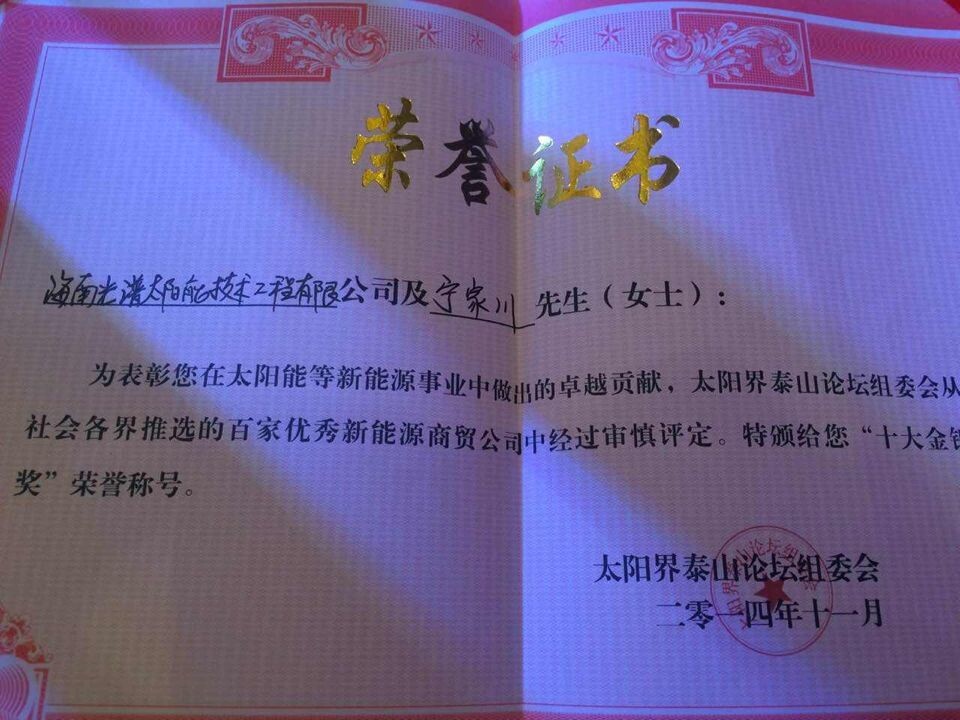 荣誉证书
海南光谱太阳能技术工程有限公司及宁家川先生（女士）：
为表彰您在太阳能等新能源事业中做出的卓越贡献，太阳界泰山论坛组委会从
社会各界推选的百家优秀新能源商贸公司中经过审慎评定。特颁给您“十大金
奖”荣誉称号。
太阳界泰山论坛组委会
二零一四年十一月
太阳界泰山论坛组委会